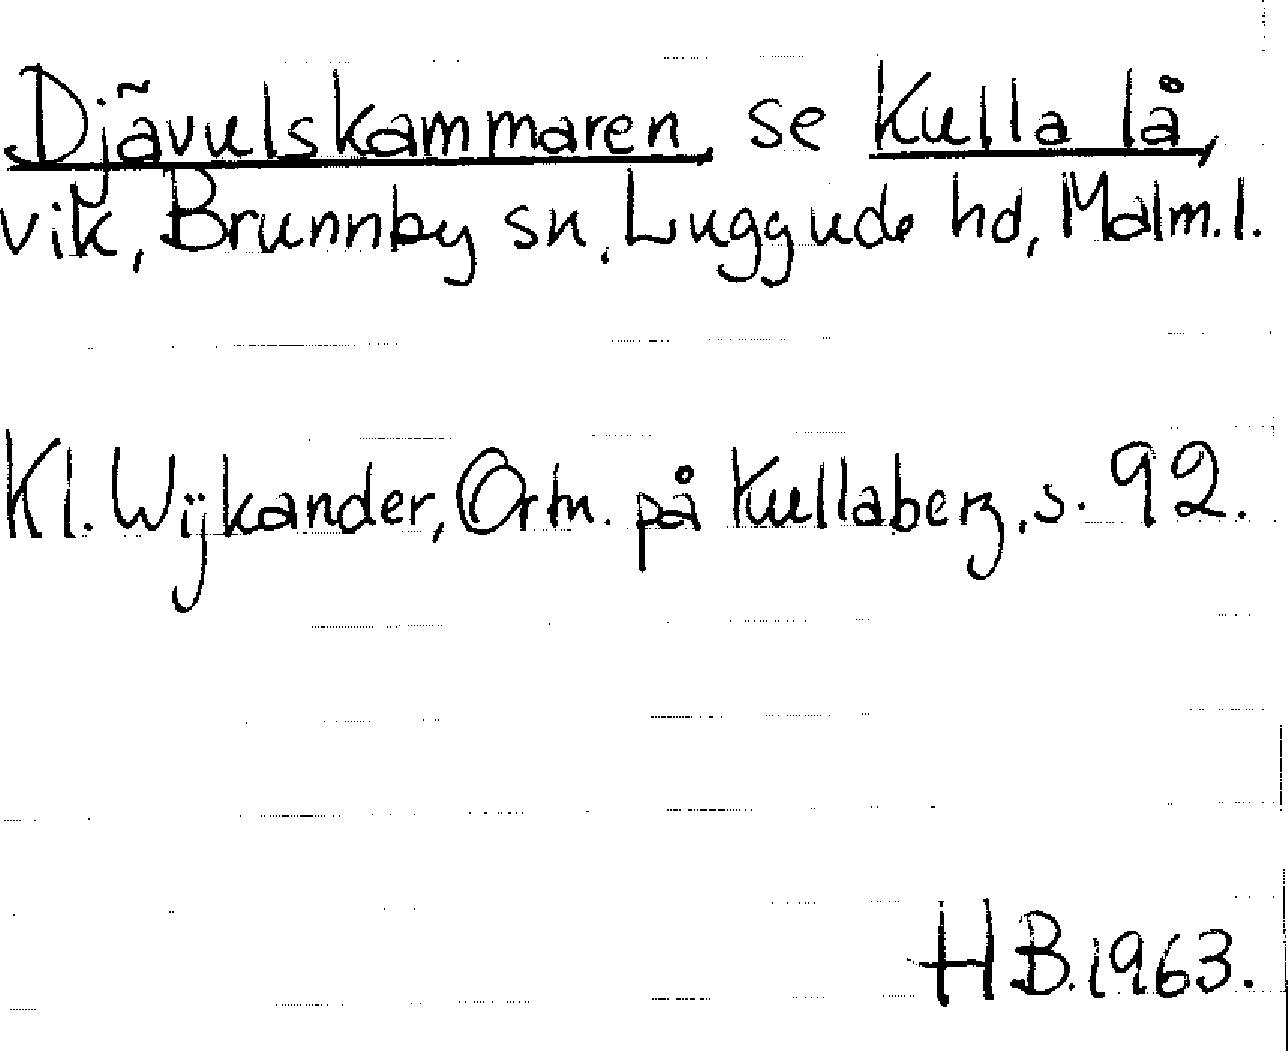 Djävulskammaren, se Kulla lå,
vik, Brunnby sn, Luggude hd, Malm.l.
Kl. Wijkander, Ortn. på Kullaberg, s. 92.
HB.1963.